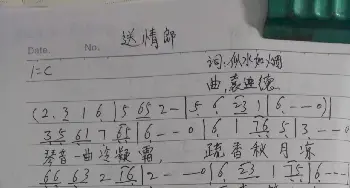 送情郎
Date. No.
1=C 词:似水如烟
曲:袁迎德
(2. 3 1 6 | 5 65 2 - | 5 6 23 1 | 6 - - - 0)|
35 61 7 65 | 6 - - 0 | 6 1 76 5 | 3 - - - 0
琴音一曲冷凝霜, 疏香秋月冻
66 63 2 76 | 2 - - - 0 | 6 23 1 75 |